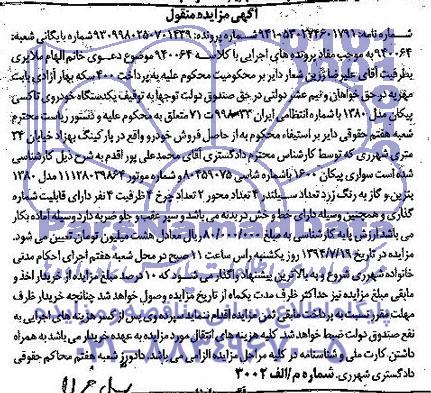 آگهی مزایده منقول
شماره نامه: ۹۴۱۰۵۳۰۲۷۴۶۰۱۷۹۱ شماره پرونده: ۹۳۰۹۹۸۰۲۵۰۷۰۱۴۳۹ شماره بایگانی شعبه:
۹۴۰۰۶۴ به موجب مفاد پرونده های اجرایی با کلاسه ۹۴۰۰۶۴ موضوع دعوی خانم الهام ملایری
بطرفیت آقای علیرضا زرین شعار دایر بر محکومیت محکوم علیه به پرداخت ۴۰۰ سکه بهار آزادی بابت
مهریه در حق خواهان و نیم عشر دولتی در حق صندوق دولت توجها به توقیف یکدستگاه خودروی تاکسی
پیکان مدل ۱۳۸۰ با شماره انتظامی ایران ۳۳-۹۹۸ ت ۷۱ متعلق به محکوم علیه و دستور ریاست محترم
شعبه هفتم حقوقی دایر بر استیفاء محکوم به از حاصل فروش خودرو واقع در پارکینگ بهزاد خیابان ۲۴
متری شهرری که توسط کارشناس محترم دادگستری آقای محمدعلی پور اقدم به شرح ذیل کارشناسی
شده است سواری پیکان ۱۶۰۰ با شماره شاسی ۸۰۴۵۹۰۷۵ و شماره موتور ۱۱۱۲۸۰۳۹۸۶۴ مدل ۱۳۸۰
بنزین و گاز به رنگ زرد تعداد سیلندر ۴ تعداد محور ۲ تعداد چرخ ۴ ظرفیت ۴ نفر دارای قابلیت شماره
گذاری و همچنین وسیله دارای خط و خش در بدنه می باشد و سپر عقب و جلو ضربه دارد وسیله آماده بکار
می باشد ارزش پایه کارشناسی به مبلغ ۸۰/۰۰۰/۰۰۰ ریال معادل هشت میلیون تومان تعیین می شود.
مزایده در تاریخ ۱۳۹۴/۷/۱۹ روز یکشنبه راس ساعت ۱۱ صبح در محل شعبه هفتم اجرای احکام مدنی
خانواده شهرری شروع و به بالاترین پیشنهاد واگذار می شود که ۱۰ درصد مبلغ مزایده از خریدار اخذ و
مابقی مبلغ مزایده نیز حداکثر ظرف مدت یکماه از تاریخ مزایده وصول خواهد شد چنانچه خریدار ظرف
مهلت مقرر نسبت به پرداخت مابقی ثمن مزایده اقدام ننماید سپرده وی پس از کسر هزینه های اجرایی به
نفع صندوق دولت ضبط خواهد شد. کلیه هزینه های انتقال مورد مزایده به عهده خریدار می باشد به همراه
داشتن کارت ملی و شناسنامه در کلیه مراحل مزایده الزامی می باشد. دادورز شعبه هفتم محاکم حقوقی
دادگستری شهرری. شماره م/الف ۳۰۰۲
۰۲۱-۸۸۳۴۹۶۷۰-۵